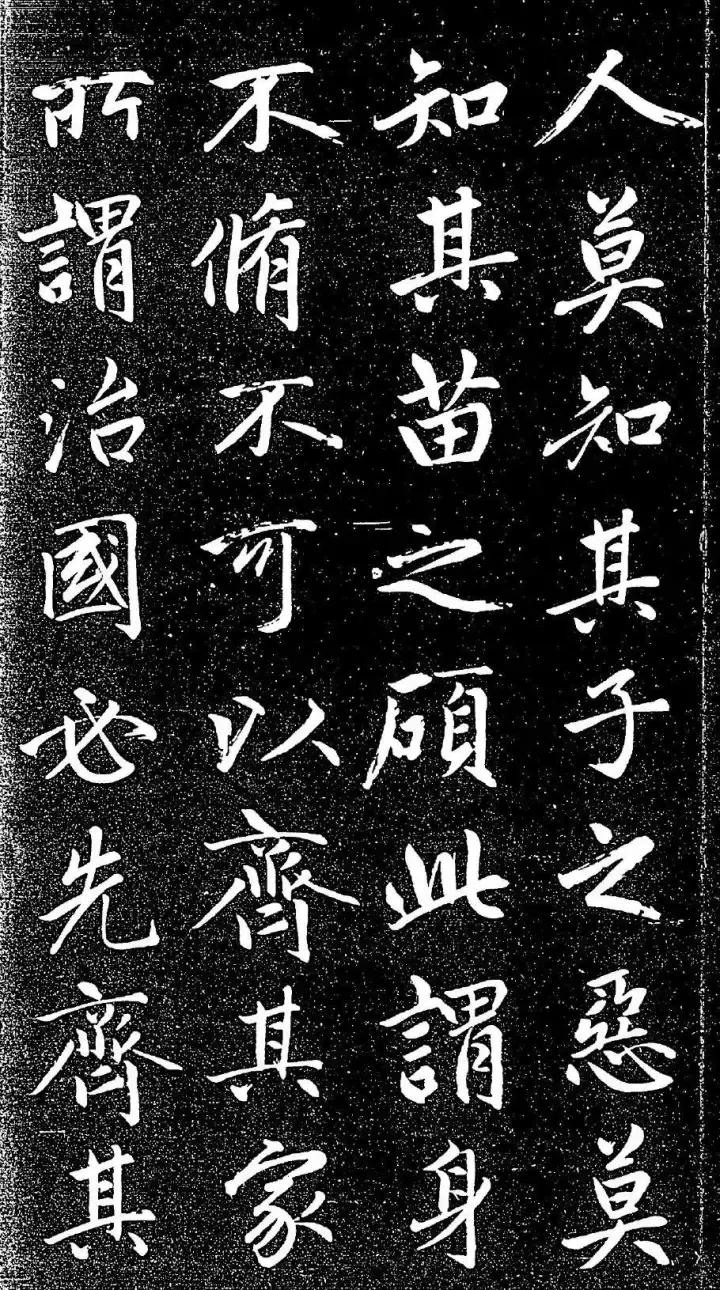 人莫知其子之惡莫
知其苗之碩此謂身
不脩不可以齊其家
所謂治國必先齊其